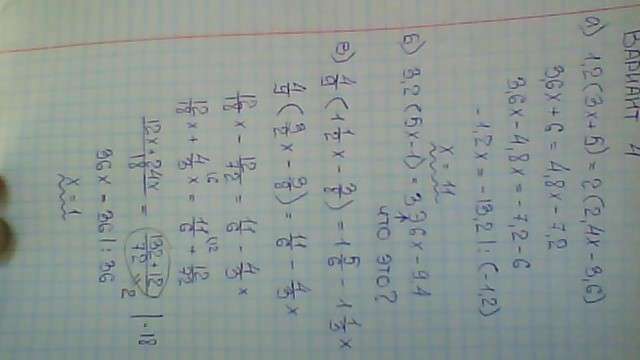 ВАРИАНТ 4
а) 1,2(3x+5)=2(2,4x-3,6)
3,6x+6=4,8x-7,2
3,6x-4,8x=-7,2-6
-1,2x=-13,2 | :(-1,2)
x=11
б) 3,2(5x-1)=3,36x-9,1
что это?
е) 4/9(1 1/2x-3/8)=1 5/6-1 1/3x
4/9(3/2x-3/8)=11/6-4/3x
12/18x-12/72=11/6-4/3x
12/18x+4/3x=11/6+12/72
12x+24x/18=132+12/72 |·18
36x=36 | :36
x=1